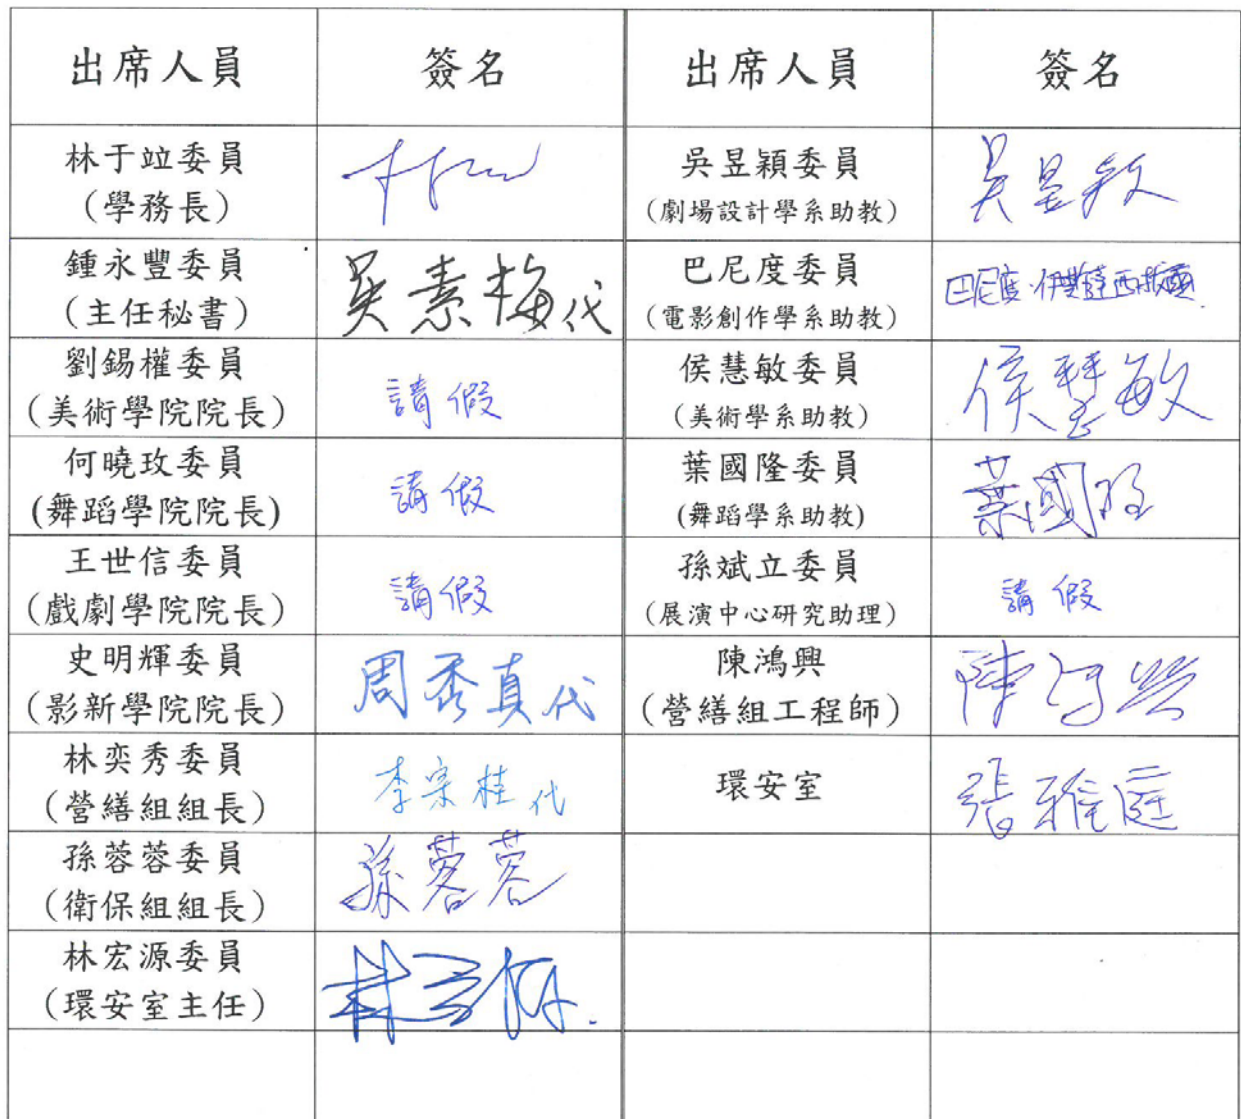 出席人員 簽名 出席人員 簽名
林于竝委員
(學務長)
吳昱穎委員
(劇場設計學系助教)
吳昱穎
鍾永豐委員
(主任秘書)
吳素梅代
巴尼度委員
(電影創作學系助教)
劉錫權委員
(美術學院院長)
請假
侯慧敏委員
(美術學系助教)
侯慧敏
何曉玫委員
(舞蹈學院院長)
請假
葉國隆委員
(舞蹈學系助教)
葉國隆
王世信委員
(戲劇學院院長)
請假
孫斌立委員
(展演中心研究助理)
請假
史明輝委員
(影新學院院長)
周秀真代
陳鴻興
(營繕組工程師)
陳鴻興
林奕秀委員
(營繕組組長)
李宗桂代
環安室
張雅庭
孫蓉蓉委員
(衛保組組長)
孫蓉蓉
林宏源委員
(環安室主任)
林宏源